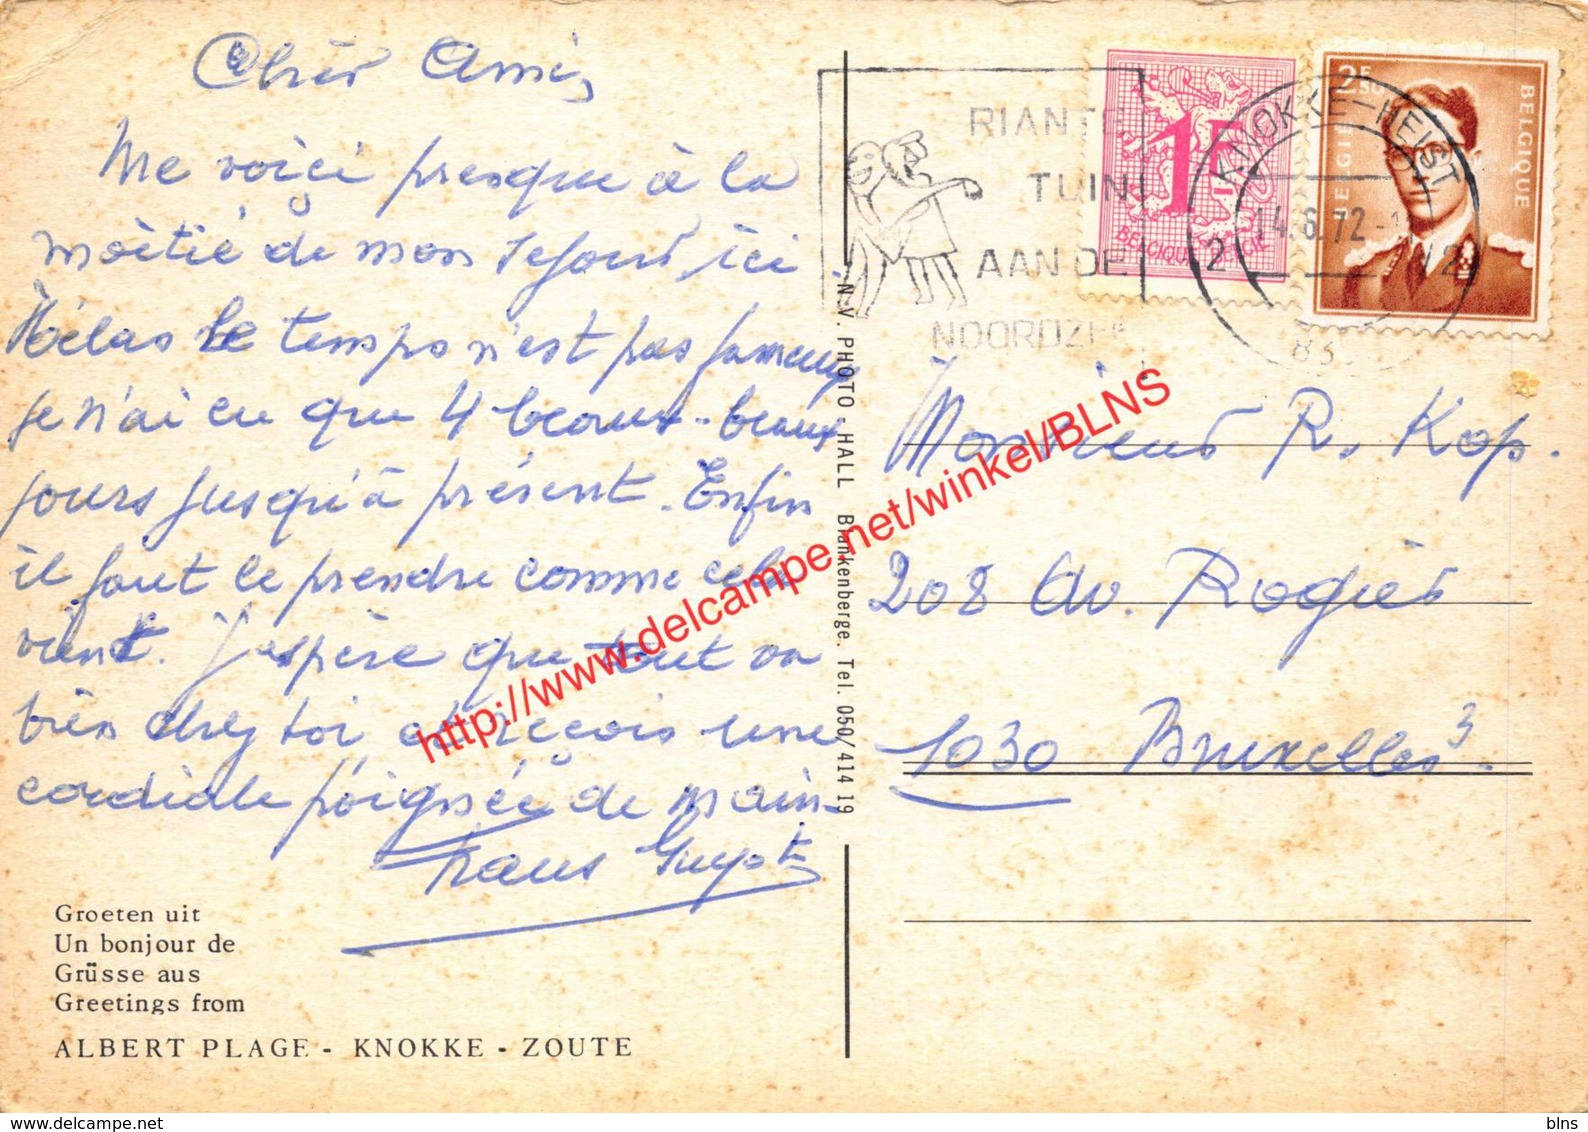 Cher Ami,
Me voici presque à la
moitié de mon sejour ici.
Hélas le temps n'est pas fameux
je n'ai eu que 4 beaux-beaux
jours jusqu'à présent. Enfin
il faut le prendre comme cela
vient. J'espère que tout va
bien chez toi et reçois une
cordiale poignée de main.
Frans Guyot
Groeten uit
Un bonjour de
Grüsse aus
Greetings from
ALBERT PLAGE - KNOKKE - ZOUTE
N.V. PHOTO - HALL Blankenberge. Tel. 050/414 19
RIANTE
TUIN
AAN DE
NOORDZEE
1F
BELGIQUE-BELGIË
KNOKKE-HEIST
2 14.6.72 2
83
2.50
BELGIE
BELGIQUE
Monsieur R. Kop.
208 Av. Rogier
1030 Bruxelles 3
http://www.delcampe.net/winkel/BLNS
Uploaded to www.delcampe.net
blns